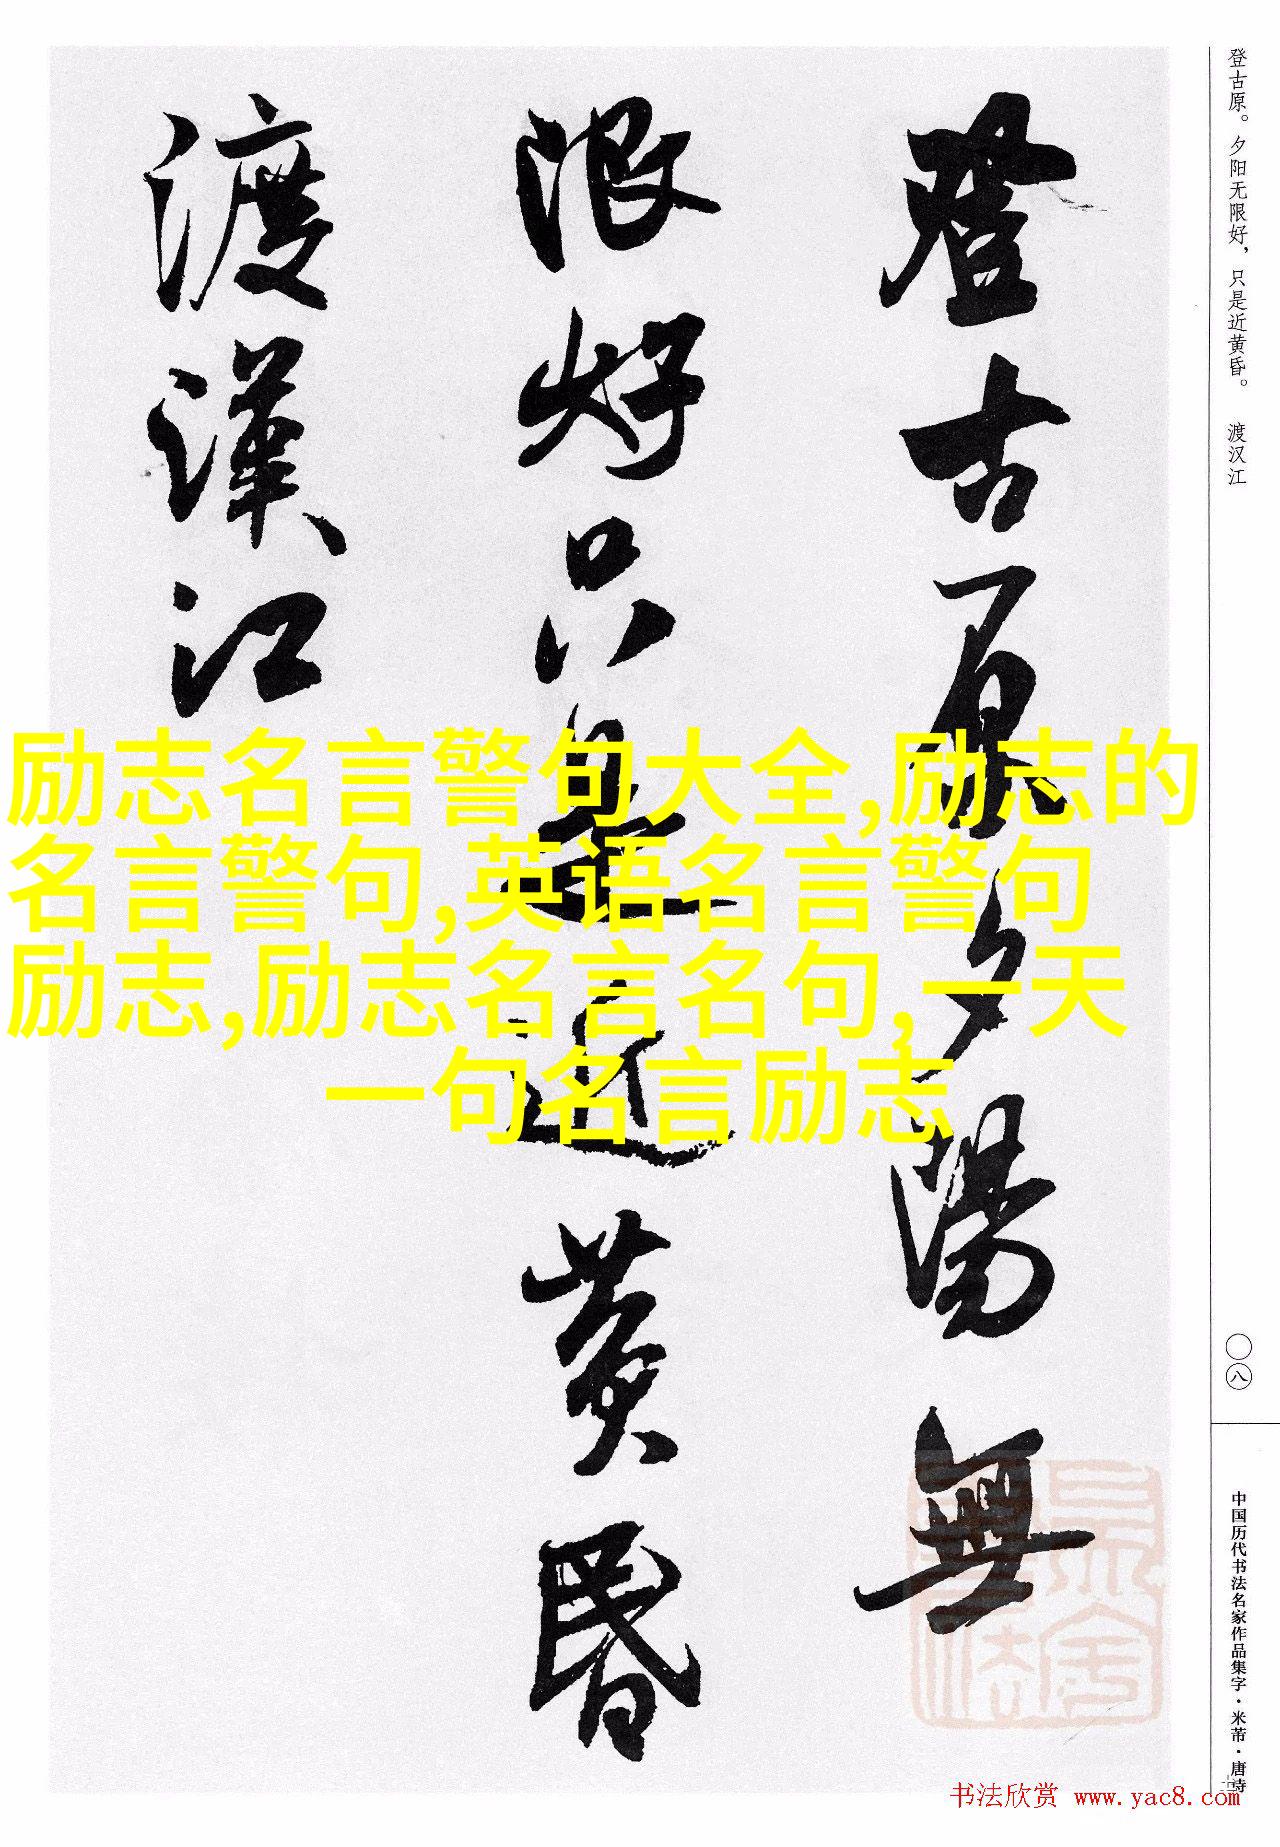 登古原。夕阳无限好，只是近黄昏。 渡汉江
登古原夕陽無
限好只是近黄昏
渡漢江
励志名言警句大全,励志的
名言警句,英语名言警句
励志,励志名言名句,一天
一句名言励志
〇八
中国历代书法名家作品集字·米芾·唐诗
书法欣赏 www.yac8.com